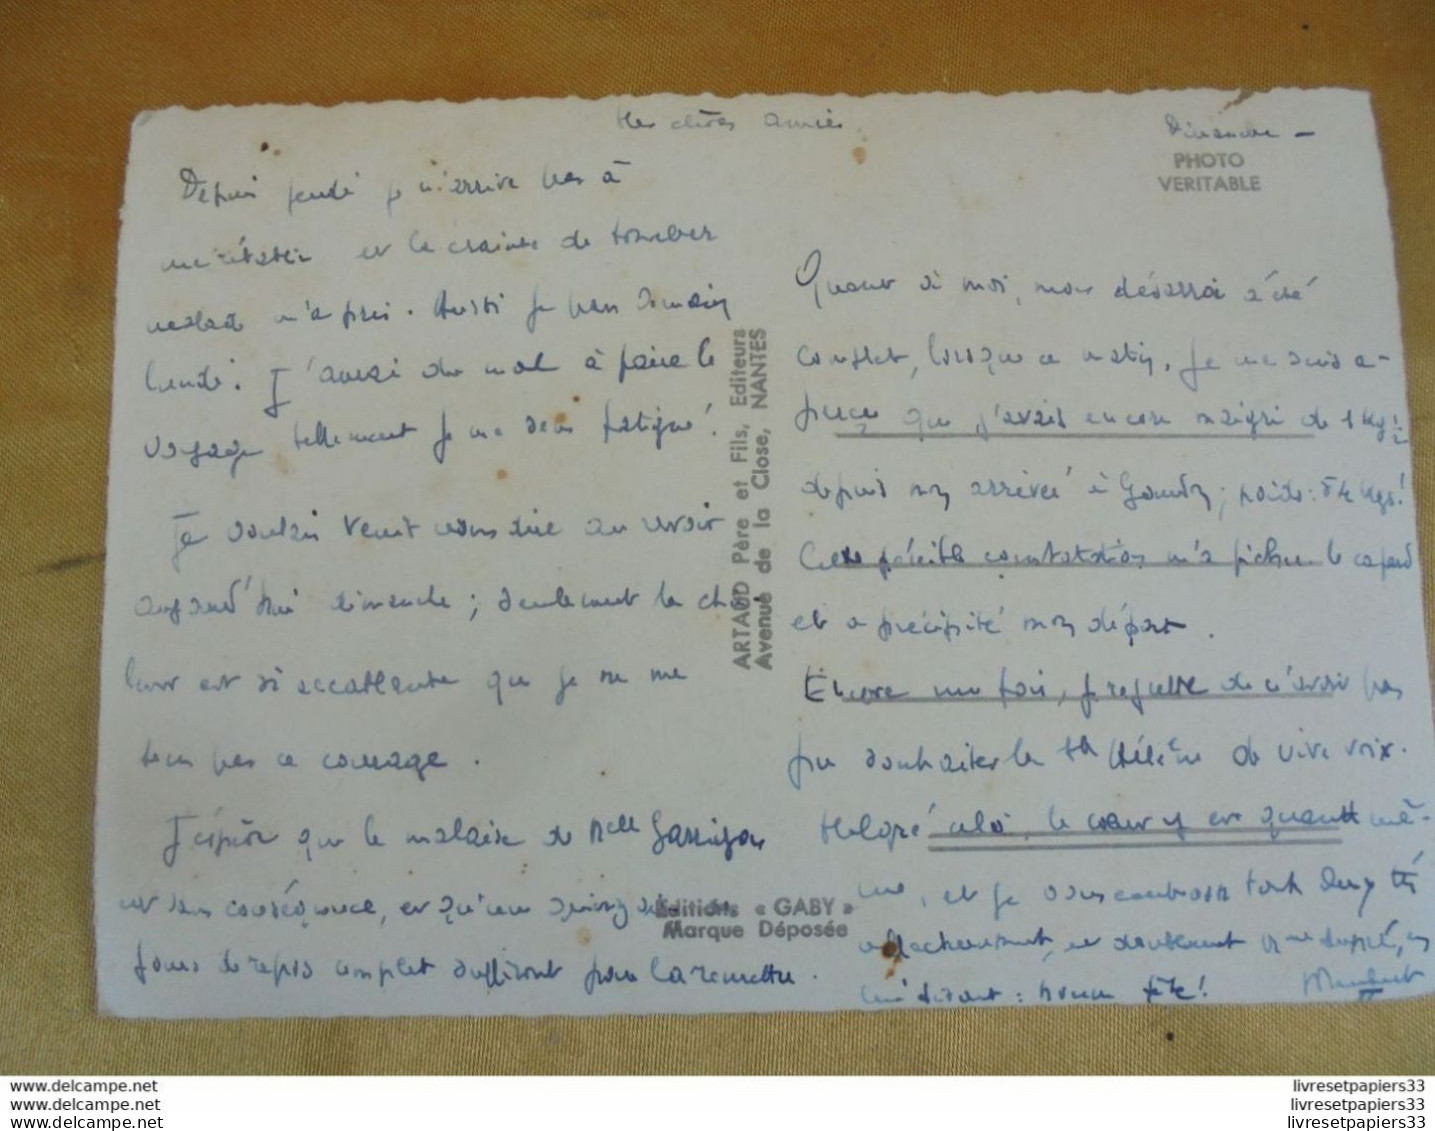 Mes chères amies
Dimanche –
PHOTO
VERITABLE
Depuis jeudi je n'arrive pas à
et la crainte de tomber
malade m'a pris. Aussi je pars demain
lundi. J'aurai du mal à faire le
voyage tellement je me sens fatigué!
Je voulais venir vous dire au revoir
aujourd'hui dimanche; seulement la cha-
leur est si accablante que je ne me
sens pas ce courage.
J'espère que le malaise de Melle Garrigou
est sans conséquence, et qu'une
jours de repos complet suffiront pour la remettre.
ARTAUD Père et Fils, Editeurs
Avenue de la Close, NANTES
Editions « GABY »
Marque Déposée
Quant à moi, mon désarroi a été
complet, lorsque ce matin, je me suis a-
perçu que j'avais encore maigri de 1 kg ½
depuis mon arrivée à ; poids: kgs!
Cette pénible constatation m'a fichu le cafard
et a précipité mon départ.
Encore une fois, je regrette de n'avoir pas
pu souhaiter la Ste Hélène de vive voix.
Malgré cela, le cœur y est quand mê-
me, et je vous embrasse toutes deux très
affectueusement, et doublement Mme Dupré, en
lui disant: bonne fête!